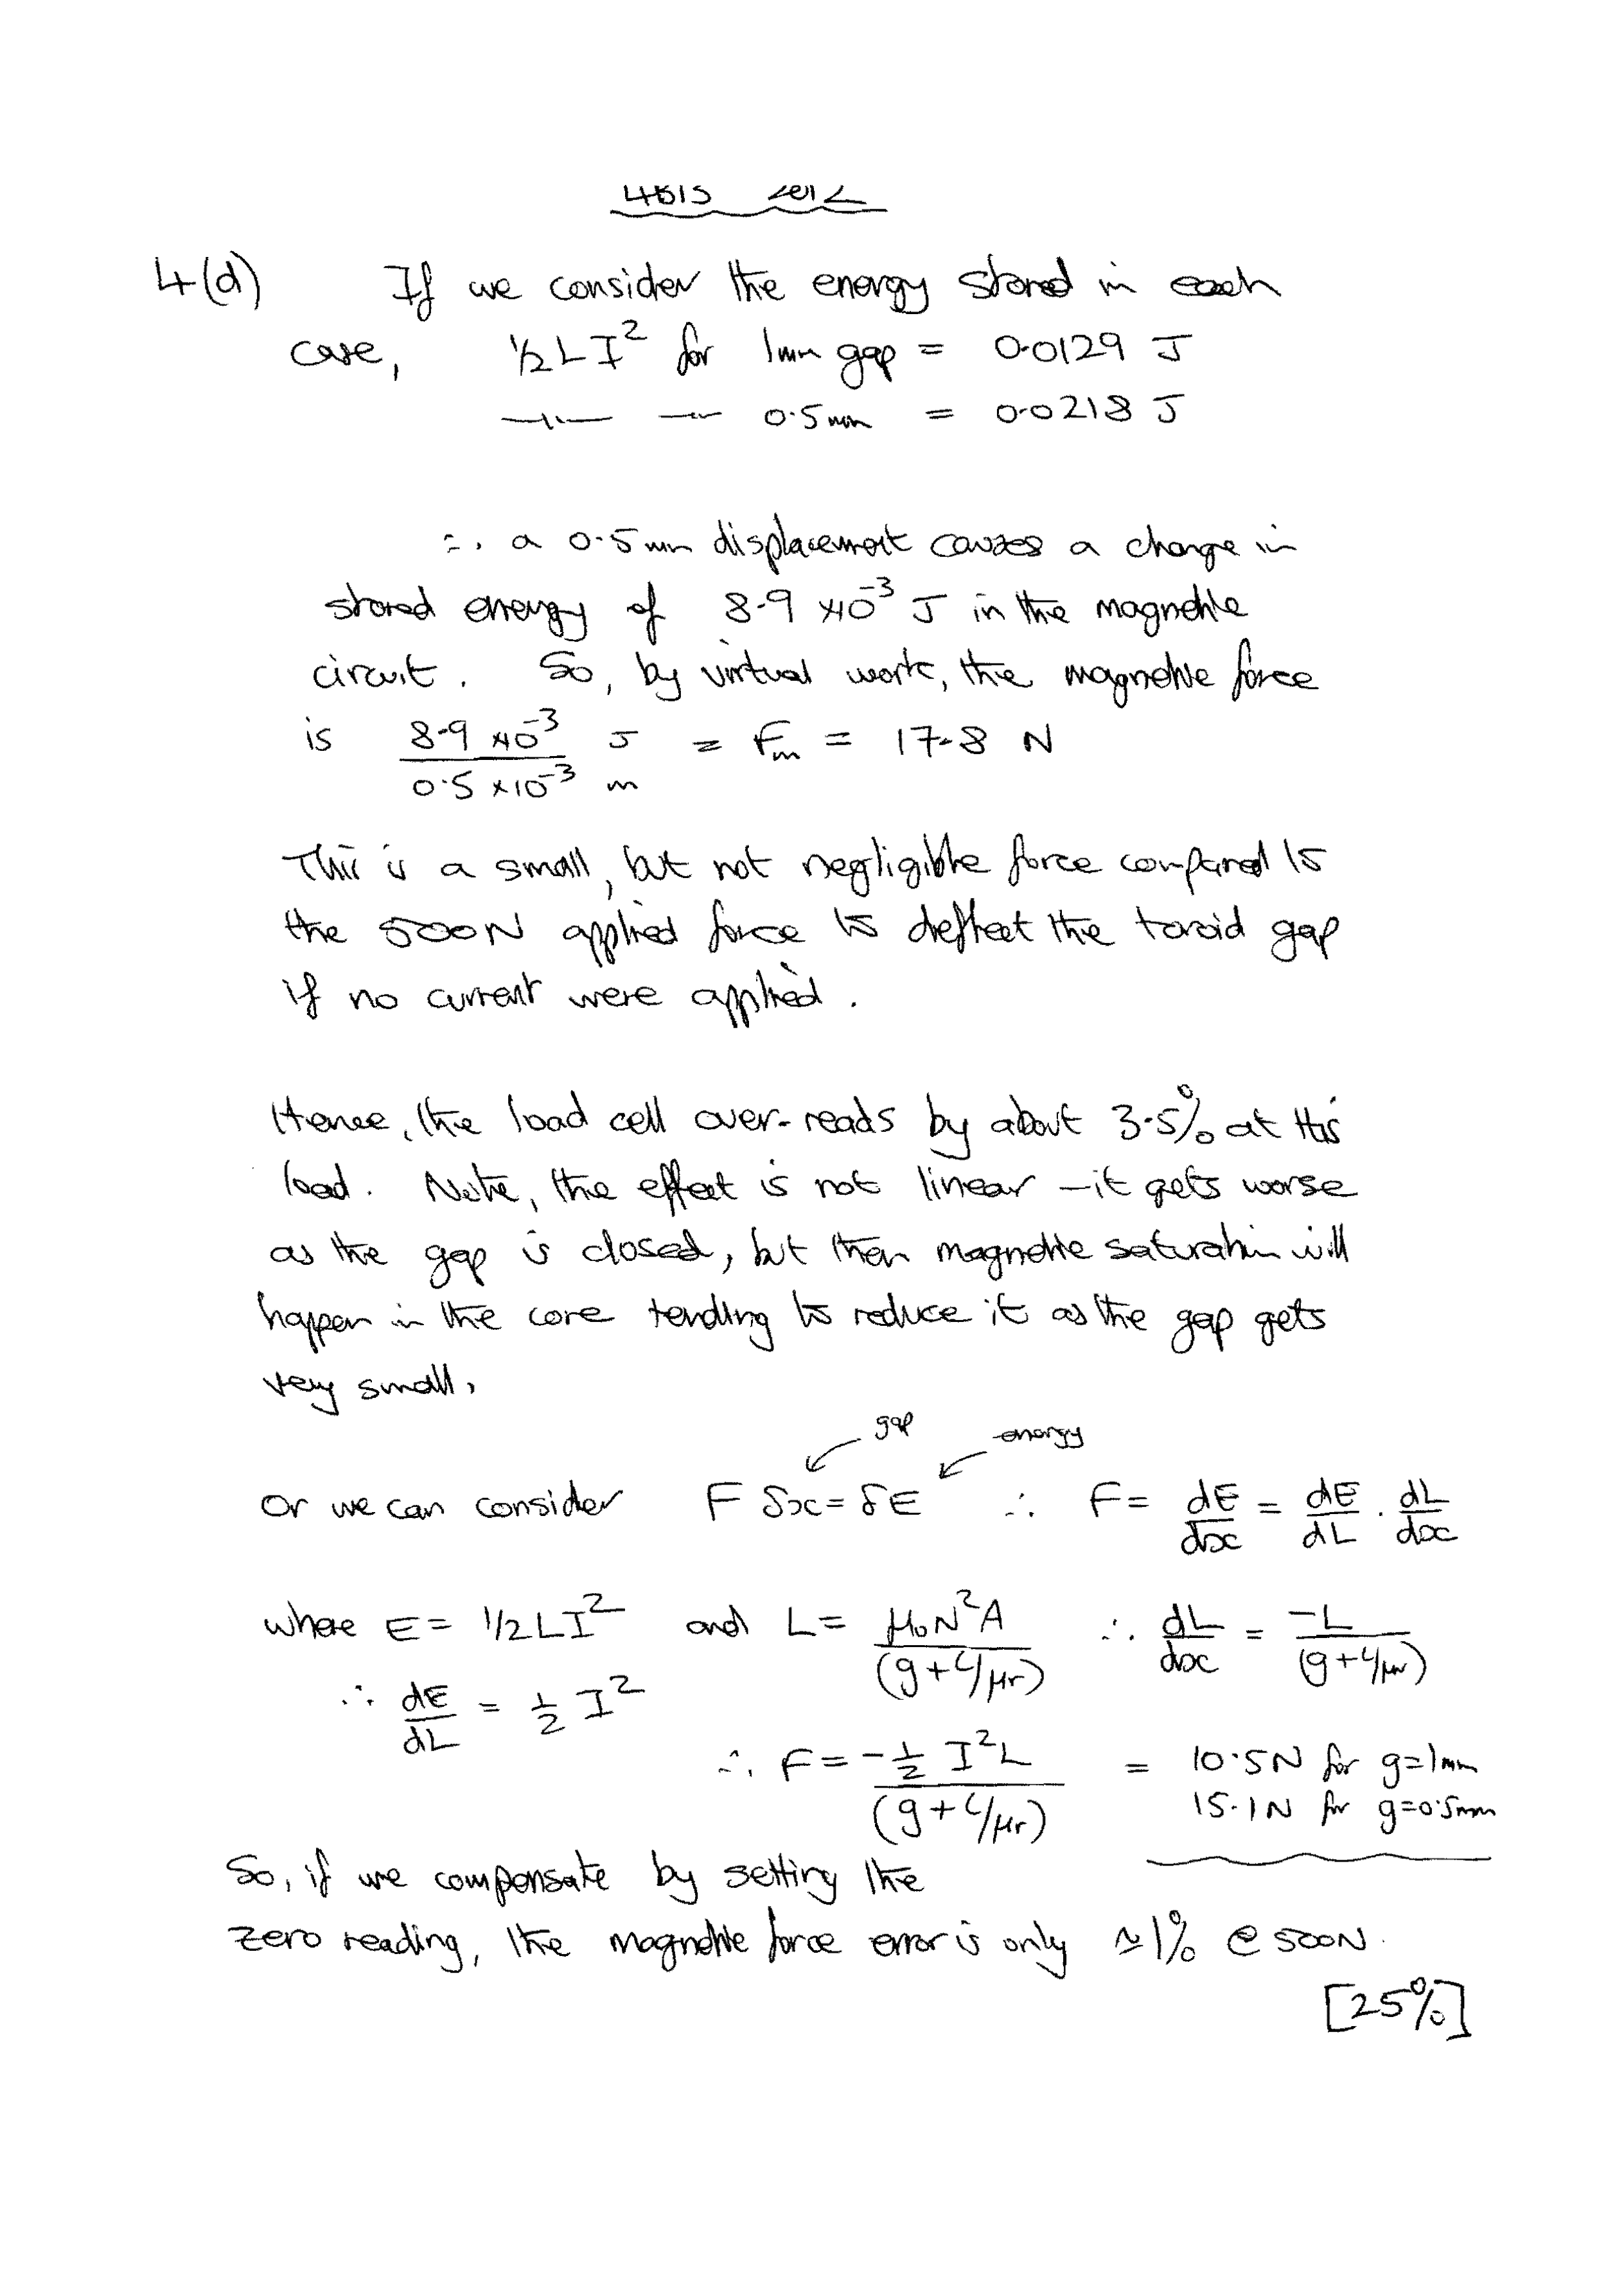 4B15 2012
4(d) If we consider the energy stored in each
case, ½LI² for 1mm gap = 0.0129 J
—〃— — 0.5mm = 0.0218 J
∴ a 0.5mm displacement causes a change in
stored energy of 8.9 ×10⁻³ J in the magnetic
circuit. So, by virtual work, the magnetic force
is 8.9 ×10⁻³ / 0.5 ×10⁻³ J/m = Fm = 17.8 N
This is a small, but not negligible force compared to
the 500N applied force to deflect the toroid gap
if no current were applied.
Hence, the load cell over-reads by about 3.5% at this
load. Note, the effect is not linear – it gets worse
as the gap is closed, but then magnetic saturation will
happen in the core tending to reduce it as the gap gets
very small.
gap energy
Or we can consider F δx = δE ∴ F = dE/dx = dE/dL . dL/dx
where E = ½LI² and L = μ₀N²A/(g+L/μr) ∴ dL/dx = -L/(g+L/μr)
∴ dE/dL = ½ I²
∴ F = -½ I²L/(g+L/μr) = 10.5N for g=1mm
15.1N for g=0.5mm
So, if we compensate by setting the
zero reading, the magnetic force error is only ≃1% @ 500N.
[25%]